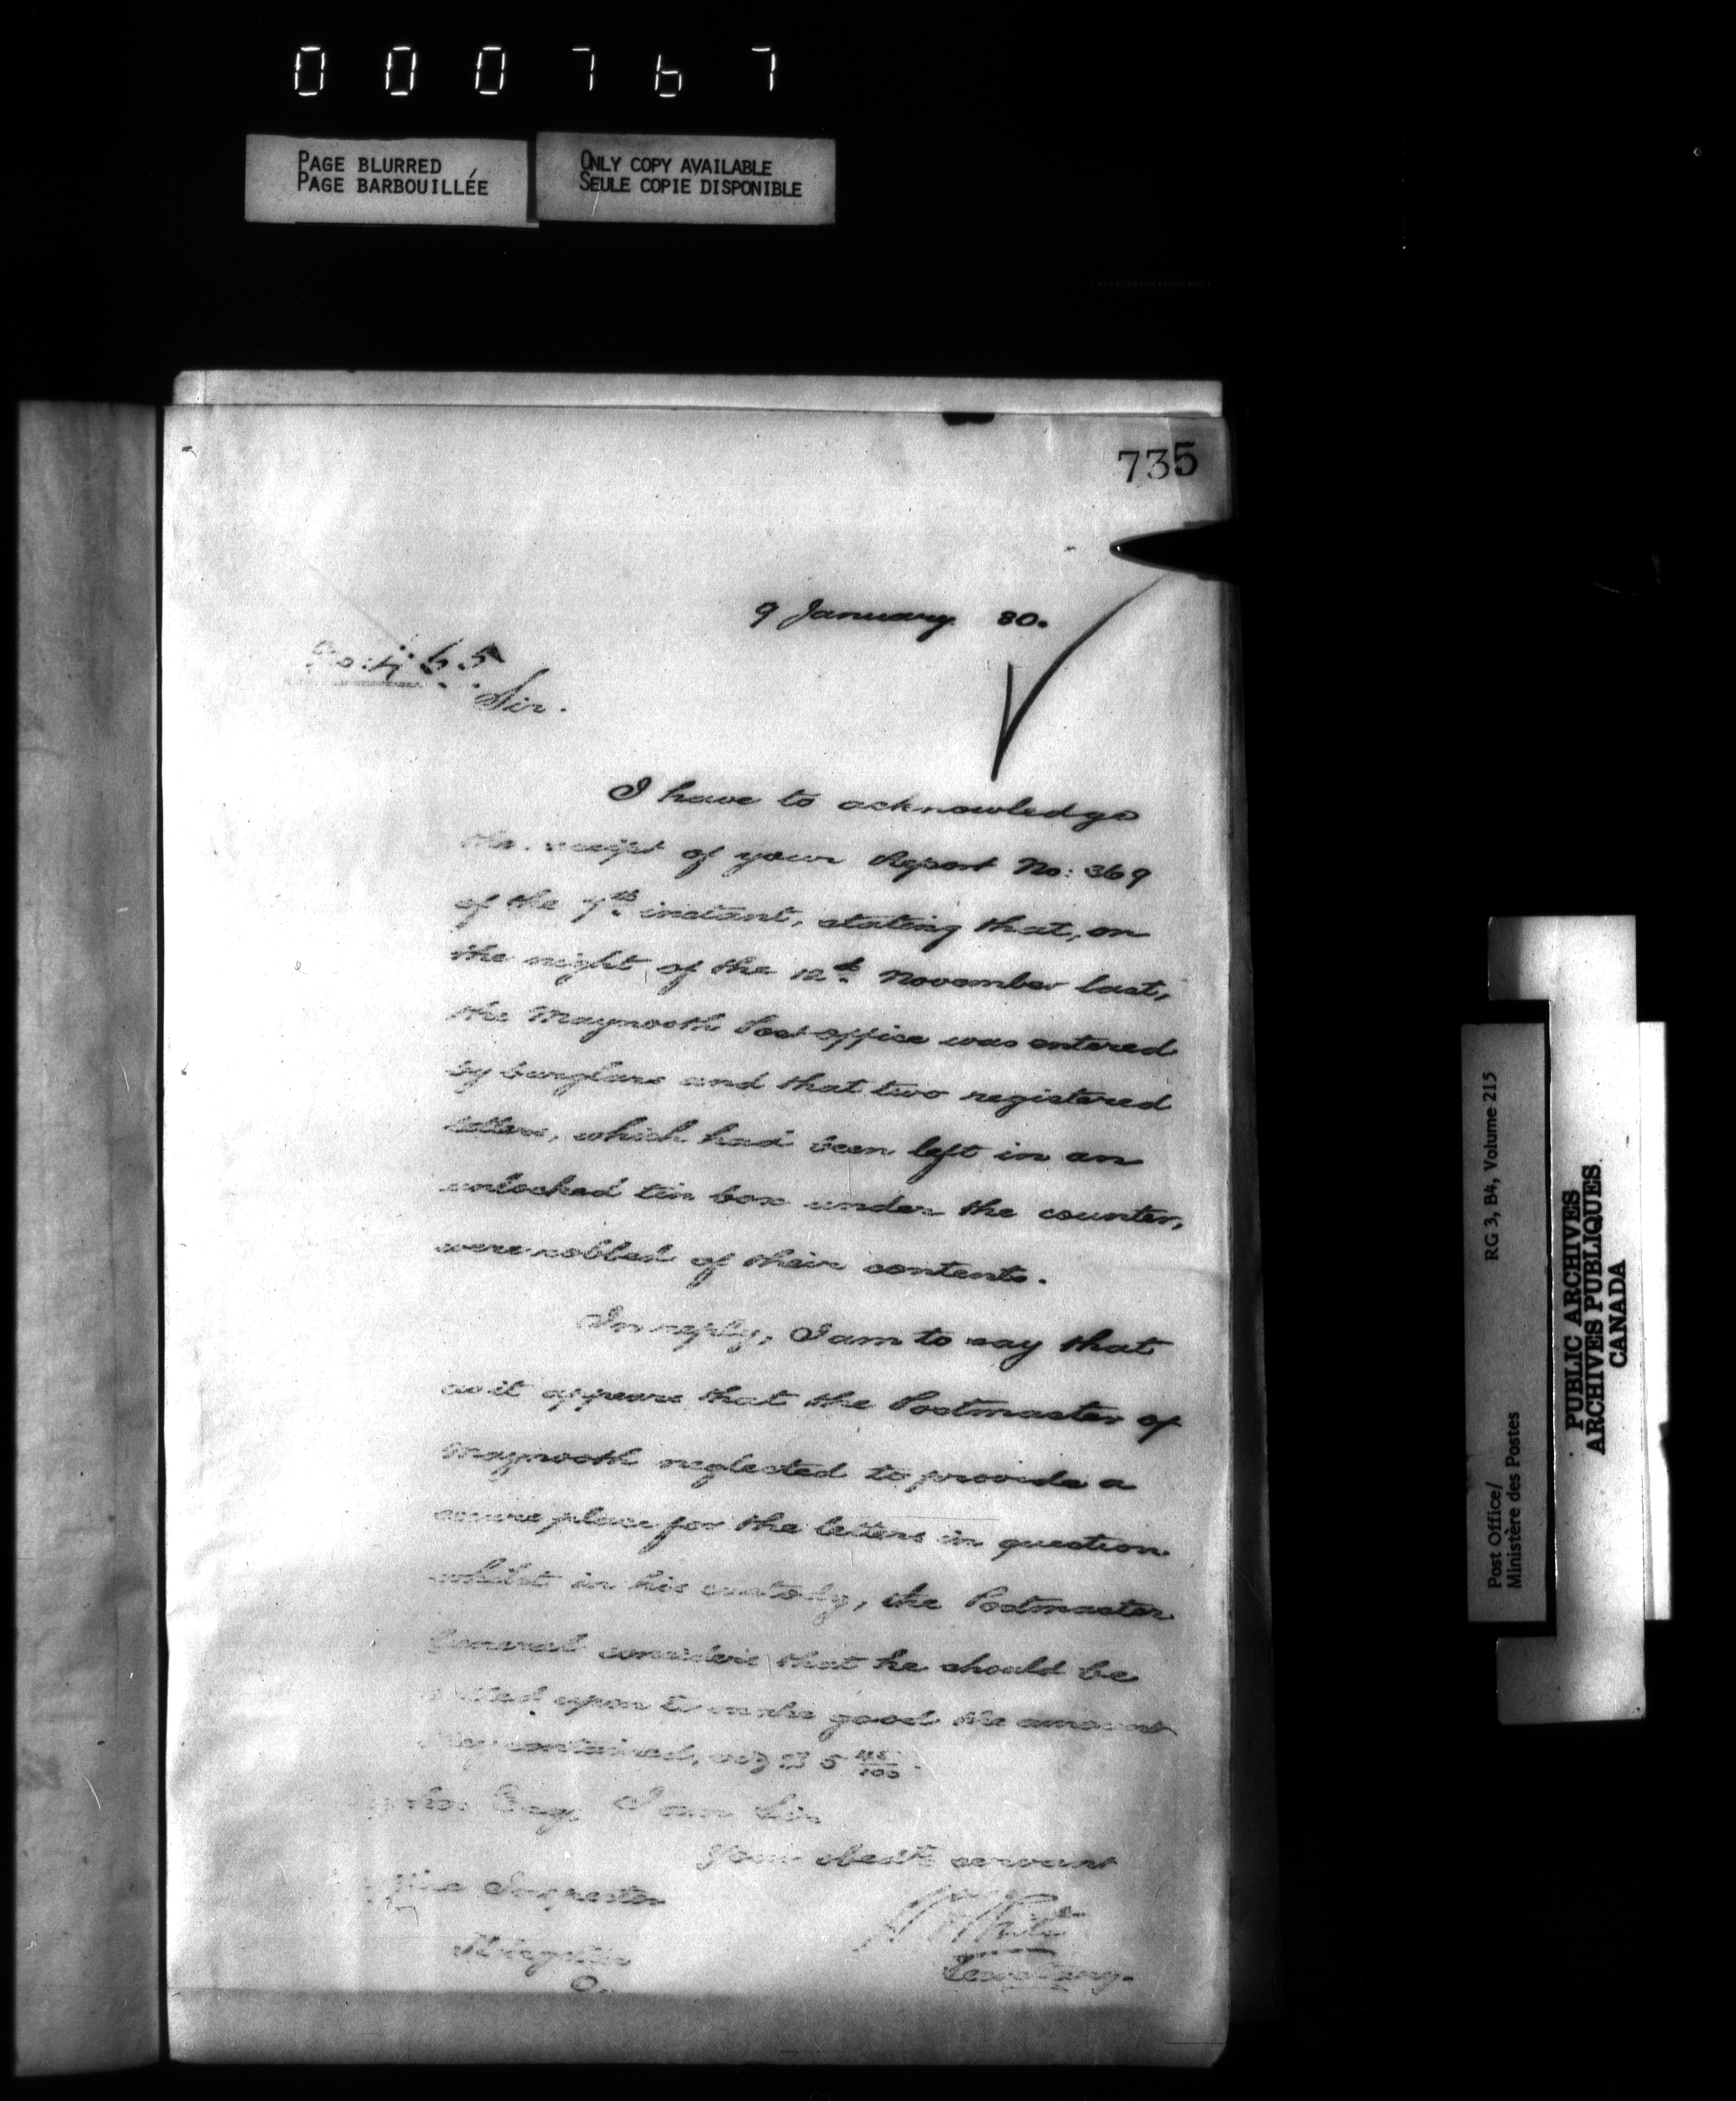 000767
PAGE BLURRED
PAGE BARBOUILLÉE
ONLY COPY AVAILABLE
SEULE COPIE DISPONIBLE
735
9 January 80.
Sir.
I have to acknowledge
the receipt of your Report No: 369
of the 7th instant, stating that, on
the night of the 12th November last,
the Maynooth Post office was entered
by burglars and that two registered
letters, which had been left in an
unlocked tin box under the counter,
were robbed of their contents.
In reply, I am to say that
as it appears that the Postmaster of
Maynooth neglected to provide a
secure place for the letters in question
whilst in his custody, the Postmaster
General considers that he should be
called upon to make good the amount
they contained, viz $ 5 45/100.
Esq. I am Sir
Your obedt servant
Inspector
White
Secretary.
RG 3, B4, Volume 215
Post Office/
Ministère des Postes
PUBLIC ARCHIVES
ARCHIVES PUBLIQUES
CANADA